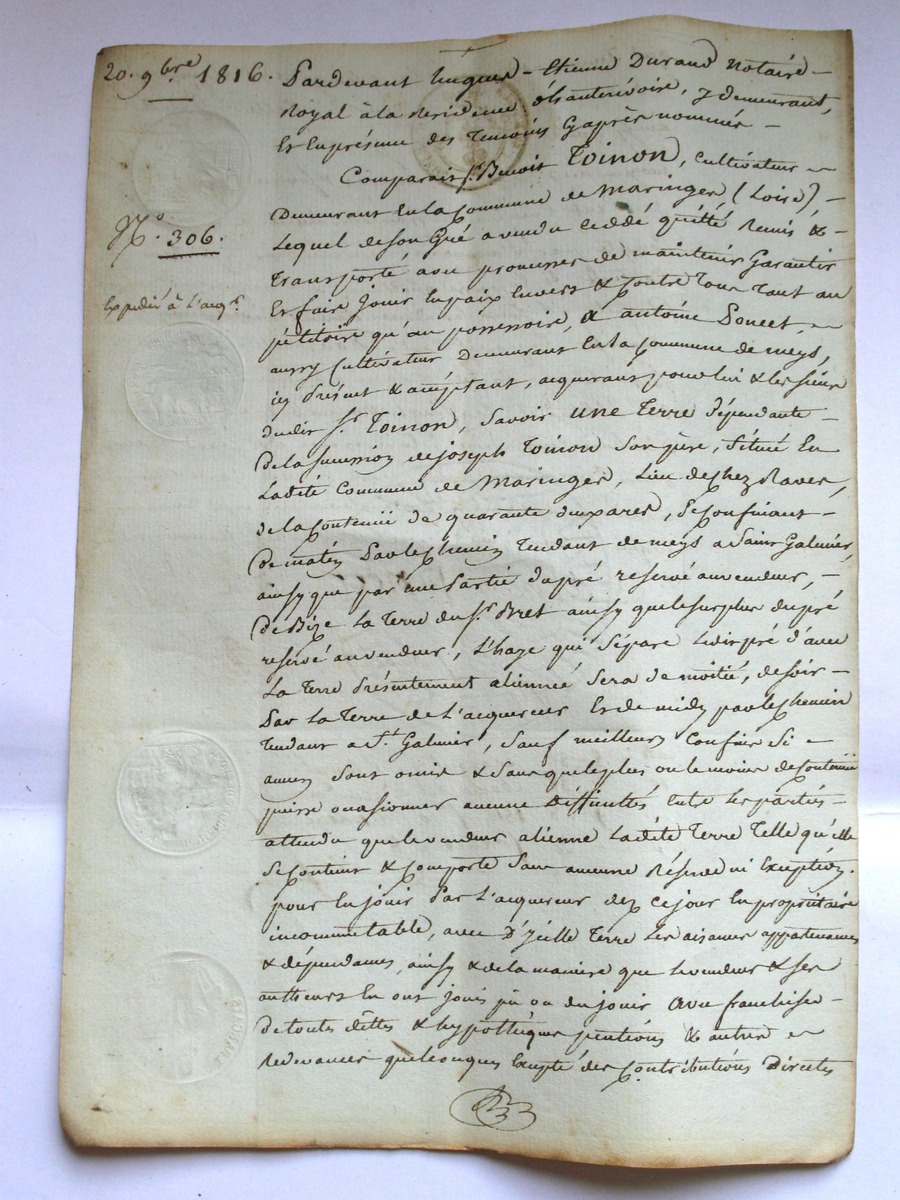 20. 9bre 1816.
N.o 306.
Expédié à l'acqr.
Pardevant hugues - Etienne Durand Notaire
Royal à la Residence de hanterivoire, y demeurant,
Et En présence des Temoins Cy après nommés
Comparait Sr. Benoit Toinon, cultivateur
Demeurant En la Commune de Maringes (Loire)
Lequel de son Gré a vendu ceddé quitté Remis &
Transporté avec promesses de maintenir Garantir
Et faire Jouir En paix Envers & Contre Tous Tant au
pétitoire qu'au possessoire, à antoine Poncet,
aussy Cultivateur Demeurant En la Commune de meys,
icy présent & acceptant, acquerant pour lui & les siens
dudit Sr. Toinon, Savoir une Terre dépendante
de la succession de joseph Toinon Son père, Située En
Ladite Commune de Maringes, Lieu de chez Raves,
de la Contenue de quarante deux ares, Se Confinant
De matin Par le chemin Tendant de meys a Saint Galmier,
ainsy que par une Partie du pré reservé au vendeur,
De Bize La Terre du Sr. Bret ainsy que le surplus du pré
reservé au vendeur, L'haye qui Sépare ledit pré d'avec
La Terre présentement alienneé Sera de moitié, de soir
Par La Terre de L'acquereur Et de midy par le chemin
Tendant a St. Galmier, Sauf meilleurs Confins Si
aucuns Sont omis & Sans que le plus ou le moins de Contenue
puisse occasionner aucune difficultés Entre Les parties
attendu que le vendeur alienne Ladite Terre Telle qu'elle
Se Contient & Comporte Sans aucune Réserve ni Exception.
pour En jouir Par L'acquereur dez ce jour En propriétaire
incommutable, avec D'ycelle Terre Les aisances appartenances
& dépendances, ainsy & de la maniere que le vendeur & Ses
autheurs En ont jouis pû ou du jouir avec franchise
de toutes dettes & hypothèques pentions & autres
redevances quelconques Excepté des Contributions Directes